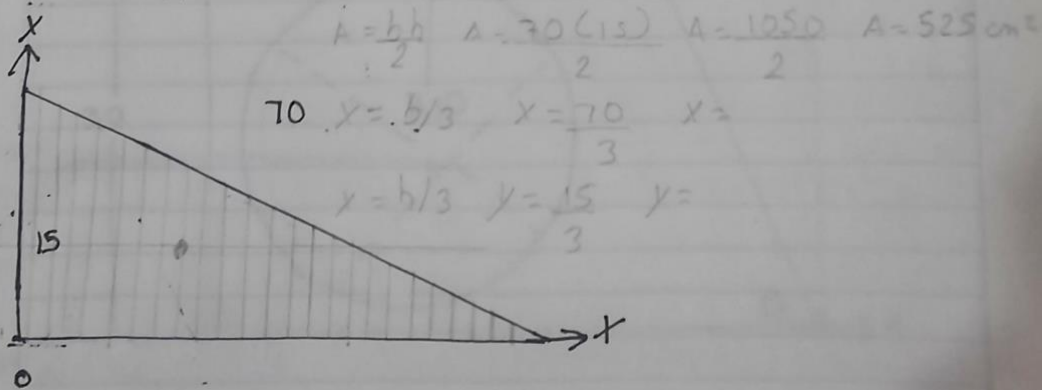 X
A = bh/2 A = 70(15)/2 A = 1050/2 A = 525 cm²
70 X = b/3 X = 70/3 X =
y = h/3 y = 15/3 y =
15
X
0